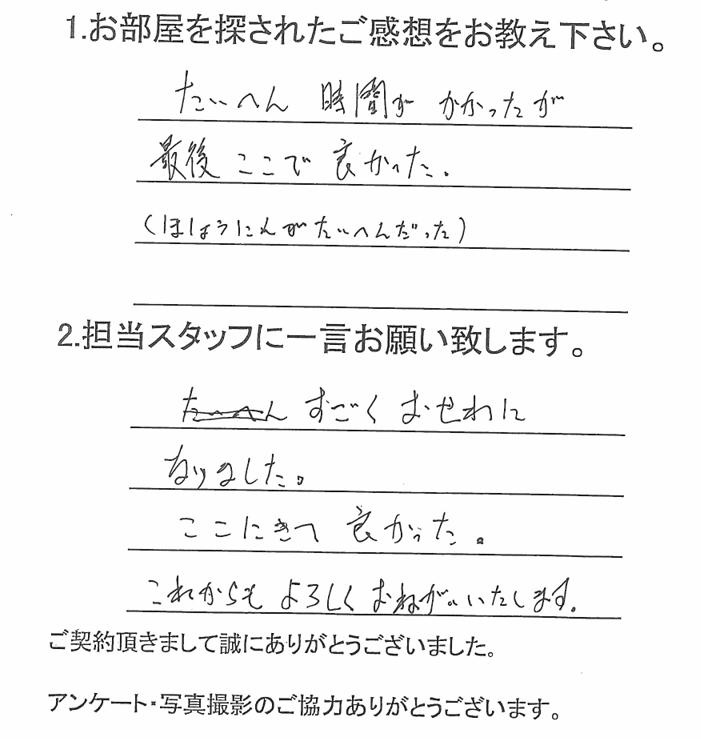 1.お部屋を探されたご感想をお教え下さい。
たいへん 時間が かかったが
最後 ここで 良かった。
(ほしょうにんがたいへんだった)
2.担当スタッフに一言お願い致します。
たいへん すごく おせわに
なりました。
ここにきて 良かった。
これからも よろしく おねがいいたします。
ご契約頂きまして誠にありがとうございました。
アンケート・写真撮影のご協力ありがとうございます。